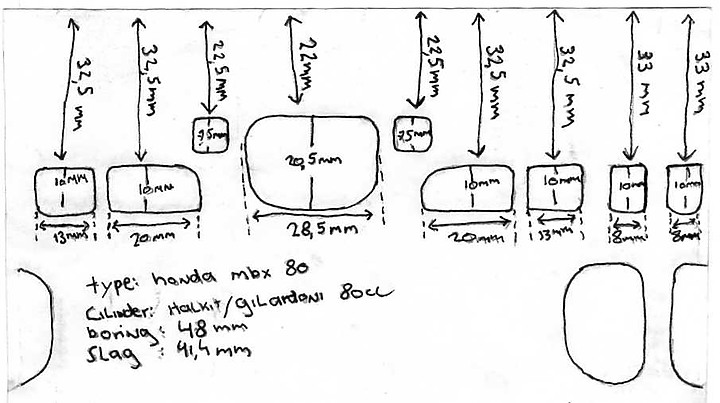 32,5 mm
32,5mm
22,5mm
22mm
225mm
32,5mm
32,5mm
33 mm
33 mm
7,5mm
20,5mm
7,5mm
10mm
10mm
10mm
10mm
10mm
10mm
13mm
20mm
28,5mm
20mm
13mm
8mm
8mm
type: honda mbx 80
Cilinder: HALKIT/GILARDONI 80cc
boring: 48 mm
Slag: 41,4 mm